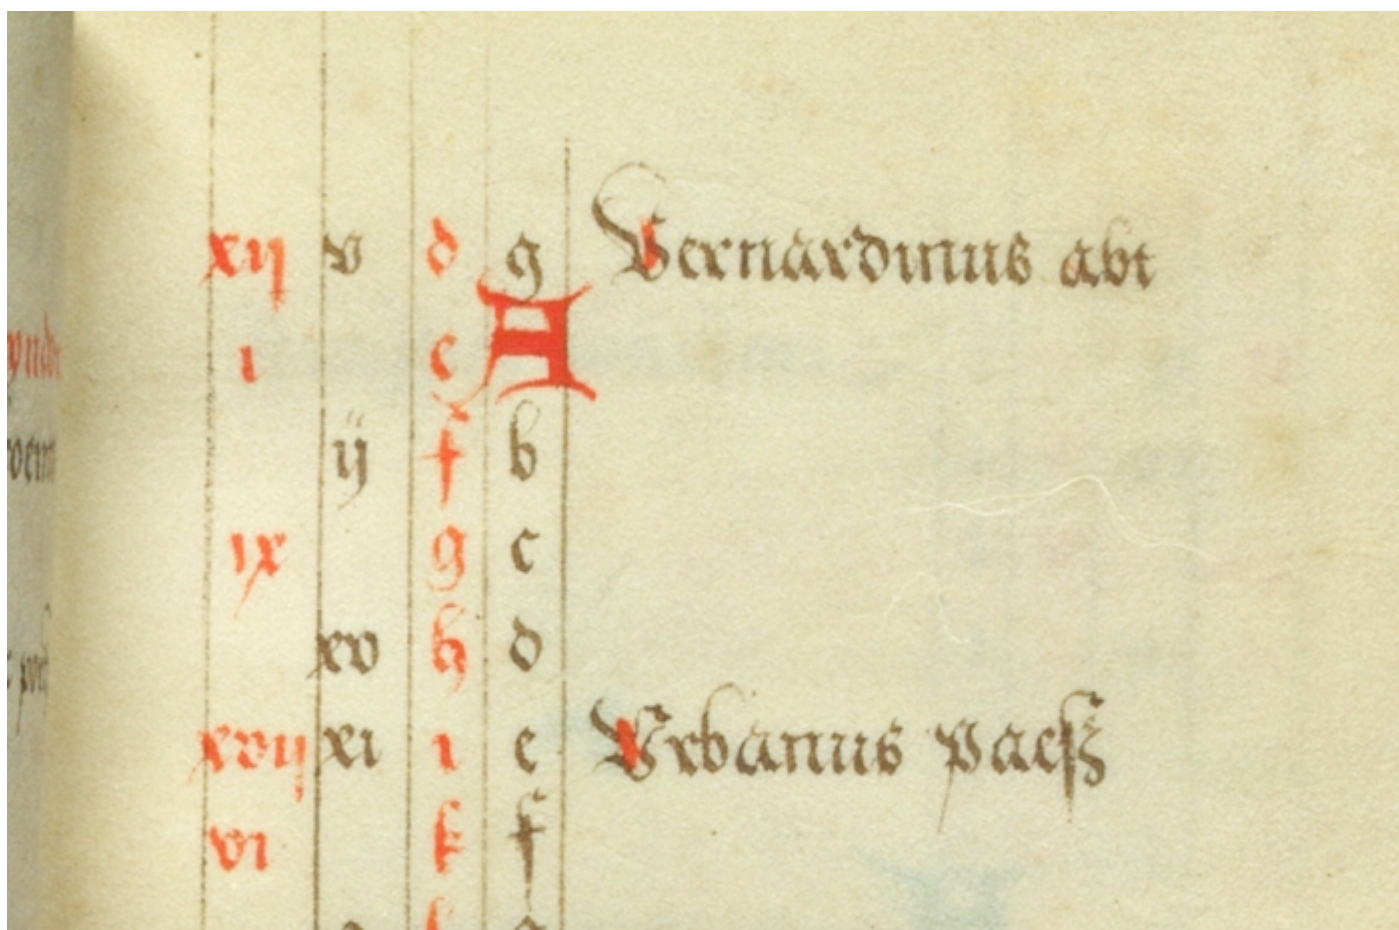 xij v d g Bernardinus abt
i e A
ij f b
ix g c
xv h d
xvij xi i e Urbanus paesz
vi k f